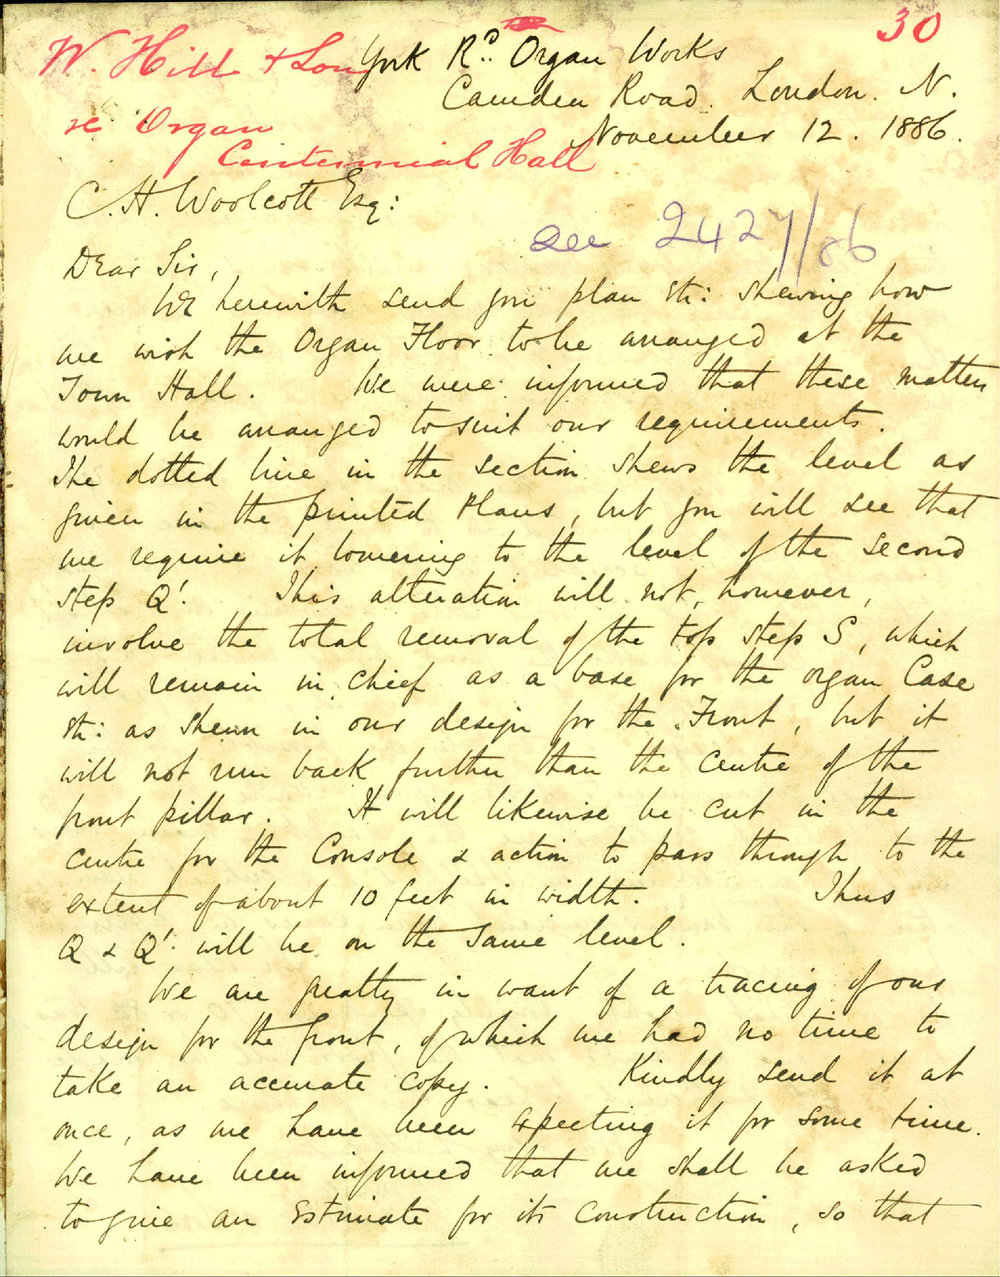 30
W. Hill & Son
re Organ
Centennial Hall
York Rd. Organ Works
Camden Road. London. N.
November 12. 1886.
C. H. Woolcott Esq:
see 2427/86
Dear Sir,
We herewith send you plan &c: shewing how
we wish the Organ Floor to be arranged at the
Town Hall. We were informed that these matters
would be arranged to suit our requirements.
The dotted line in the section shews the level as
given in the printed Plans, but you will see that
we require it lowering to the level of the second
step Q'. This alteration will not, however,
involve the total removal of the top step S, which
will remain in chief as a base for the organ Case
&c: as shewn in our design for the Front, but it
will not run back further than the centre of the
front pillar. It will likewise be cut in the
centre for the Console & action to pass through to the
extent of about 10 feet in width. Thus
Q & Q': will be on the same level.
We are greatly in want of a tracing of our
design for the front, of which we had no time to
take an accurate copy. Kindly send it at
once, as we have been expecting it for some time.
We have been informed that we shall be asked
to give an Estimate for its construction, so that